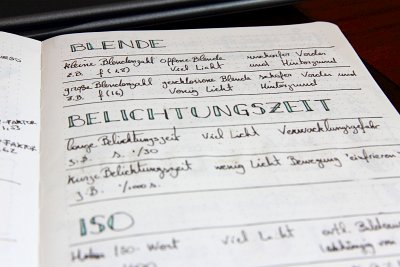 BLENDE
kleine Blendenzahl offene Blende unscharfer Vorder
z.B. f(1,8) viel Licht und Hintergrund
große Blendenzahl geschlossene Blende scharfer Vorder und
z.B. f(16) wenig Licht Hintergrund
BELICHTUNGSZEIT
lange Belichtungszeit viel Licht Verwacklungsgefahr
z.B. s. 1/30
kurze Belichtungszeit wenig Licht Bewegung "einfrieren"
z.B. 1/1000 s.
ISO
Hoher ISO-Wert viel Licht evtl.
-FAKTOR